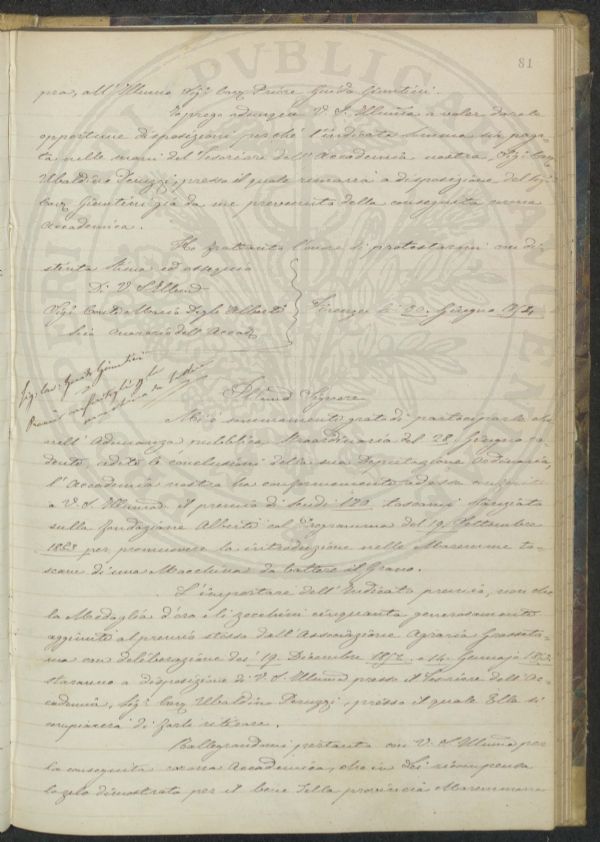 81
pra, all'Illmo Sigr Cav. Priore Guido Giuntini.
La prego adunque V. S. Illma a voler dare le
opportune disposizioni perchè l'indicata somma sia paga-
ta nelle mani del Tesoriere dell'Accademia nostra, Sigr Cav.
Ubaldino Peruzzi, presso il quale rimarrà a disposizione del Sigr
Cav. Giuntini già da me prevenuto della conseguita corona
Accademica.
Ho frattanto l'onore di protestarmi con di-
stinta stima ed ossequio
Di V. S. Illma
Sigr Conte Degli Alberti
Firenze li 30. Giugno
Sig. Cav. Guido Giuntini
Premio
Illmo Signore
Mi è sommamente grato di parteciparle che
nell'Adunanza pubblica straordinaria del 28. Giugno ca-
dente, udite le conclusioni della sua Deputazione Ordinaria,
l'Accademia nostra ha conformemente ad esse
a V. S. Illma il premio di Scudi 170 toscani stanziato
sulla fondazione Alberti col Programma del 19. Settembre
per promuovere la introduzione nelle Maremme to-
scane di una Macchina da battere il Grano.
L'importare dell'indicato premio, non che
la Medaglia d'oro e li zecchini cinquanta generosamente
aggiunti al premio stesso dall'Associazione Agraria Grosseta-
na con deliberazione dei 19. Dicembre e 14. Gennajo
staranno a disposizione di V. S. Illma presso il Tesoriere dell'Ac-
cademia, Sigr Cav. Ubaldino Peruzzi, presso il quale Ella si
compiacerà di farle ritirare.
Rallegrandomi pertanto con V. S. Illma per
la conseguita corona Accademica, che in Lei ricompensa
lo zelo dimostrato per il bene della provincia Maremmana